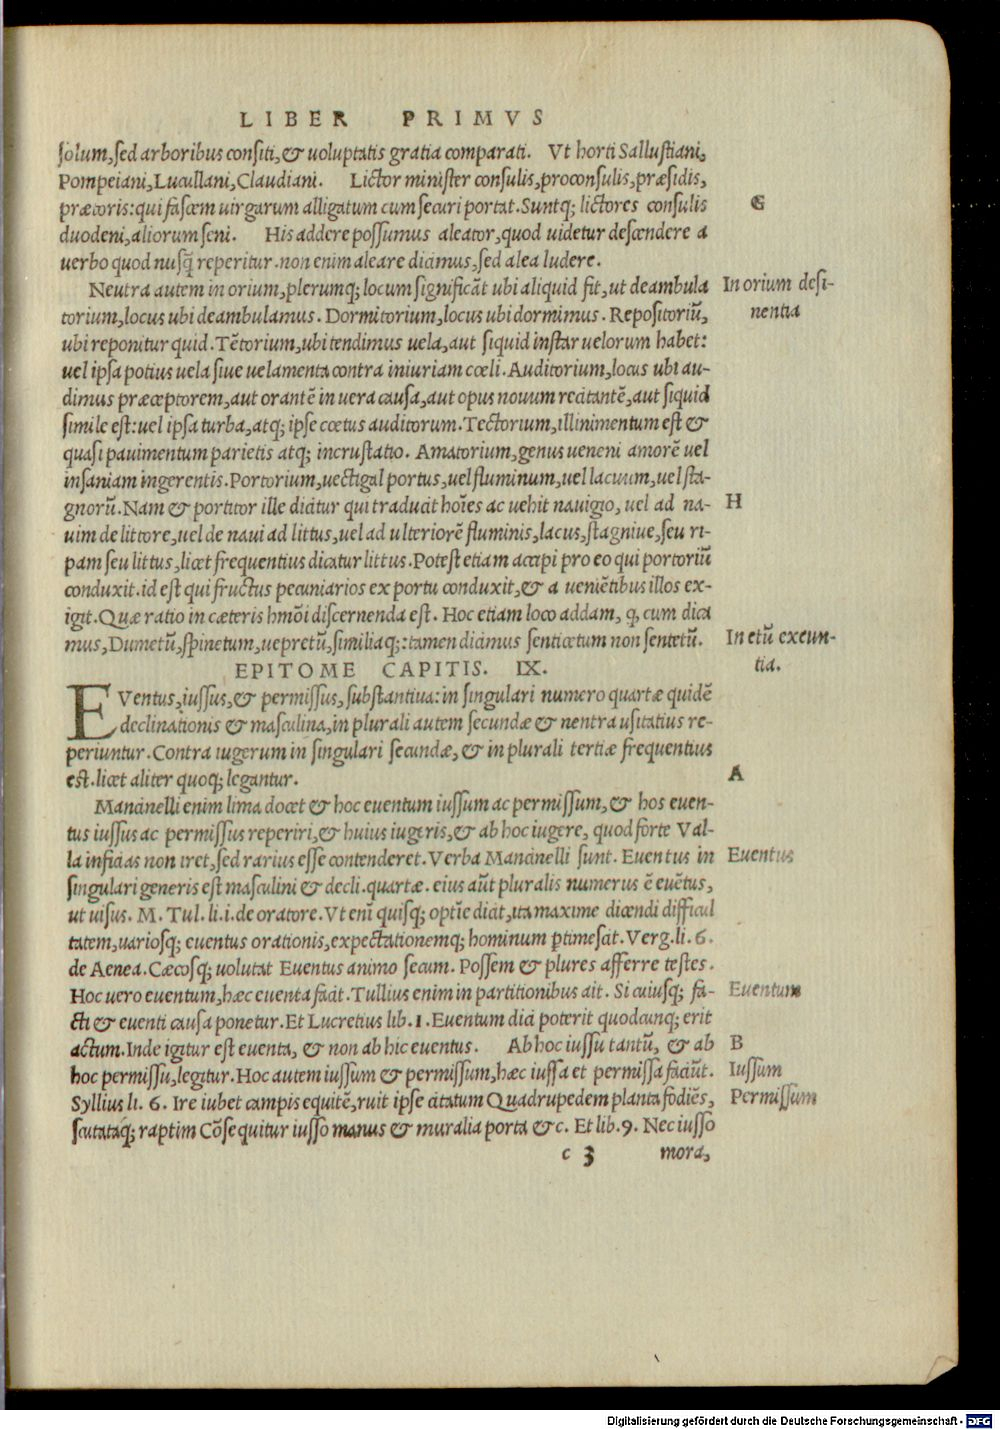 LIBER PRIMVS
solum, sed arboribus consiti, & uoluptatis gratia comparati. Vt horti Sallustiani,
Pompeiani, Lucullani, Claudiani. Lictor minister consulis, proconsulis, præsidis,
prætoris: qui fascem uirgarum alligatum cum securi portat. Suntq; lictores consulis
G
duodeni, aliorum seni. His addere possumus aleator, quod uidetur descendere a
uerbo quod nusq̃ reperitur. non enim aleare dicimus, sed alea ludere.
Neutra autem in orium, plerumq; locum significãt ubi aliquid fit, ut deambula
In orium desi-
torium, locus ubi deambulamus. Dormitorium, locus ubi dormimus. Repositoriũ,
nentia
ubi reponitur quid. Tẽtorium, ubi tendimus uela, aut siquid instar uelorum habet:
uel ipsa potius uela siue uelamenta contra iniuriam cœli. Auditorium, locus ubi au-
dimus præceptorem, aut orantẽ in uera causa, aut opus nouum recitantẽ, aut siquid
simile est: uel ipsa turba, atq; ipse cœtus auditorum. Tectorium, illinimentum est &
quasi pauimentum parietis atq; incrustatio. Amatorium, genus ueneni amorẽ uel
insaniam ingerentis. Portorium, uectigal portus, uel fluminum, uel lacuum, uel sta-
gnorũ. Nam & portitor ille dicitur qui traducit hoĩes ac uehit nauigio, uel ad na-
H
uim de littore, uel de naui ad littus, uel ad ulteriorẽ fluminis, lacus, stagniue, seu ri-
pam seu littus, licet frequentius dicatur littus. Potest etiam accipi pro eo qui portoriũ
conduxit. id est qui fructus pecuniarios ex portu conduxit, & a ueniẽtibus illos ex-
igit. Quæ ratio in cæteris hmõi discernenda est. Hoc etiam loco addam, ꝙ cum dici
mus, Dumetũ, spinetum, uepretũ, similiaq;: tamen dicimus senticetum non sentetũ.
In etũ exeun-
tia.
EPITOME CAPITIS. IX.
EVentus, iussus, & permissus, substantiua: in singulari numero quartæ quidẽ
declinationis & masculina, in plurali autem secundæ & neutra usitatius re-
periuntur. Contra iugerum in singulari secundæ, & in plurali tertiæ frequentius
est. licet aliter quoq; legantur.
A
Mancinelli enim lima docet & hoc euentum iussum ac permissum, & hos euen-
tus iussus ac permissus reperiri, & huius iugeris, & ab hoc iugere, quod forte Val-
la inficias non iret, sed rarius esse contenderet. Verba Mancinelli sunt. Euentus in
Euentus
singulari generis est masculini & decli. quartæ. eius aũt pluralis numerus ẽ euẽtus,
ut uisus. M. Tul. li. i. de oratore. Vt enĩ quisq; optĩe dicit, ita maxime dicendi difficul
tatem, uariosq; euentus orationis, expectationemq; hominum ꝑtimescit. Verg. li. 6.
de Aenea. Cæcosq; uolutat Euentus animo secum. Possem & plures afferre testes.
Hoc uero euentum, hæc euenta facit. Tullius enim in partitionibus ait. Si cuiusq; fa-
Euentum
cti & euenti causa ponetur. Et Lucretius lib. 1. Euentum dici poterit quodcunq; erit
actum. Inde igitur est euenta, & non ab hic euentus. Ab hoc iussu tantũ, & ab
B
hoc permissu, legitur. Hoc autem iussum & permissum, hæc iussa et permissa faciũt.
Iussum
Syllius li. 6. Ire iubet campis equitẽ, ruit ipse citatum Quadrupedem planta fodiẽs,
Permissum
scutataq; raptim Cõsequitur iusso manus & muralia porta &c. Et lib. 9. Nec iusso
c 3 mora,
Digitalisierung gefördert durch die Deutsche Forschungsgemeinschaft - DFG